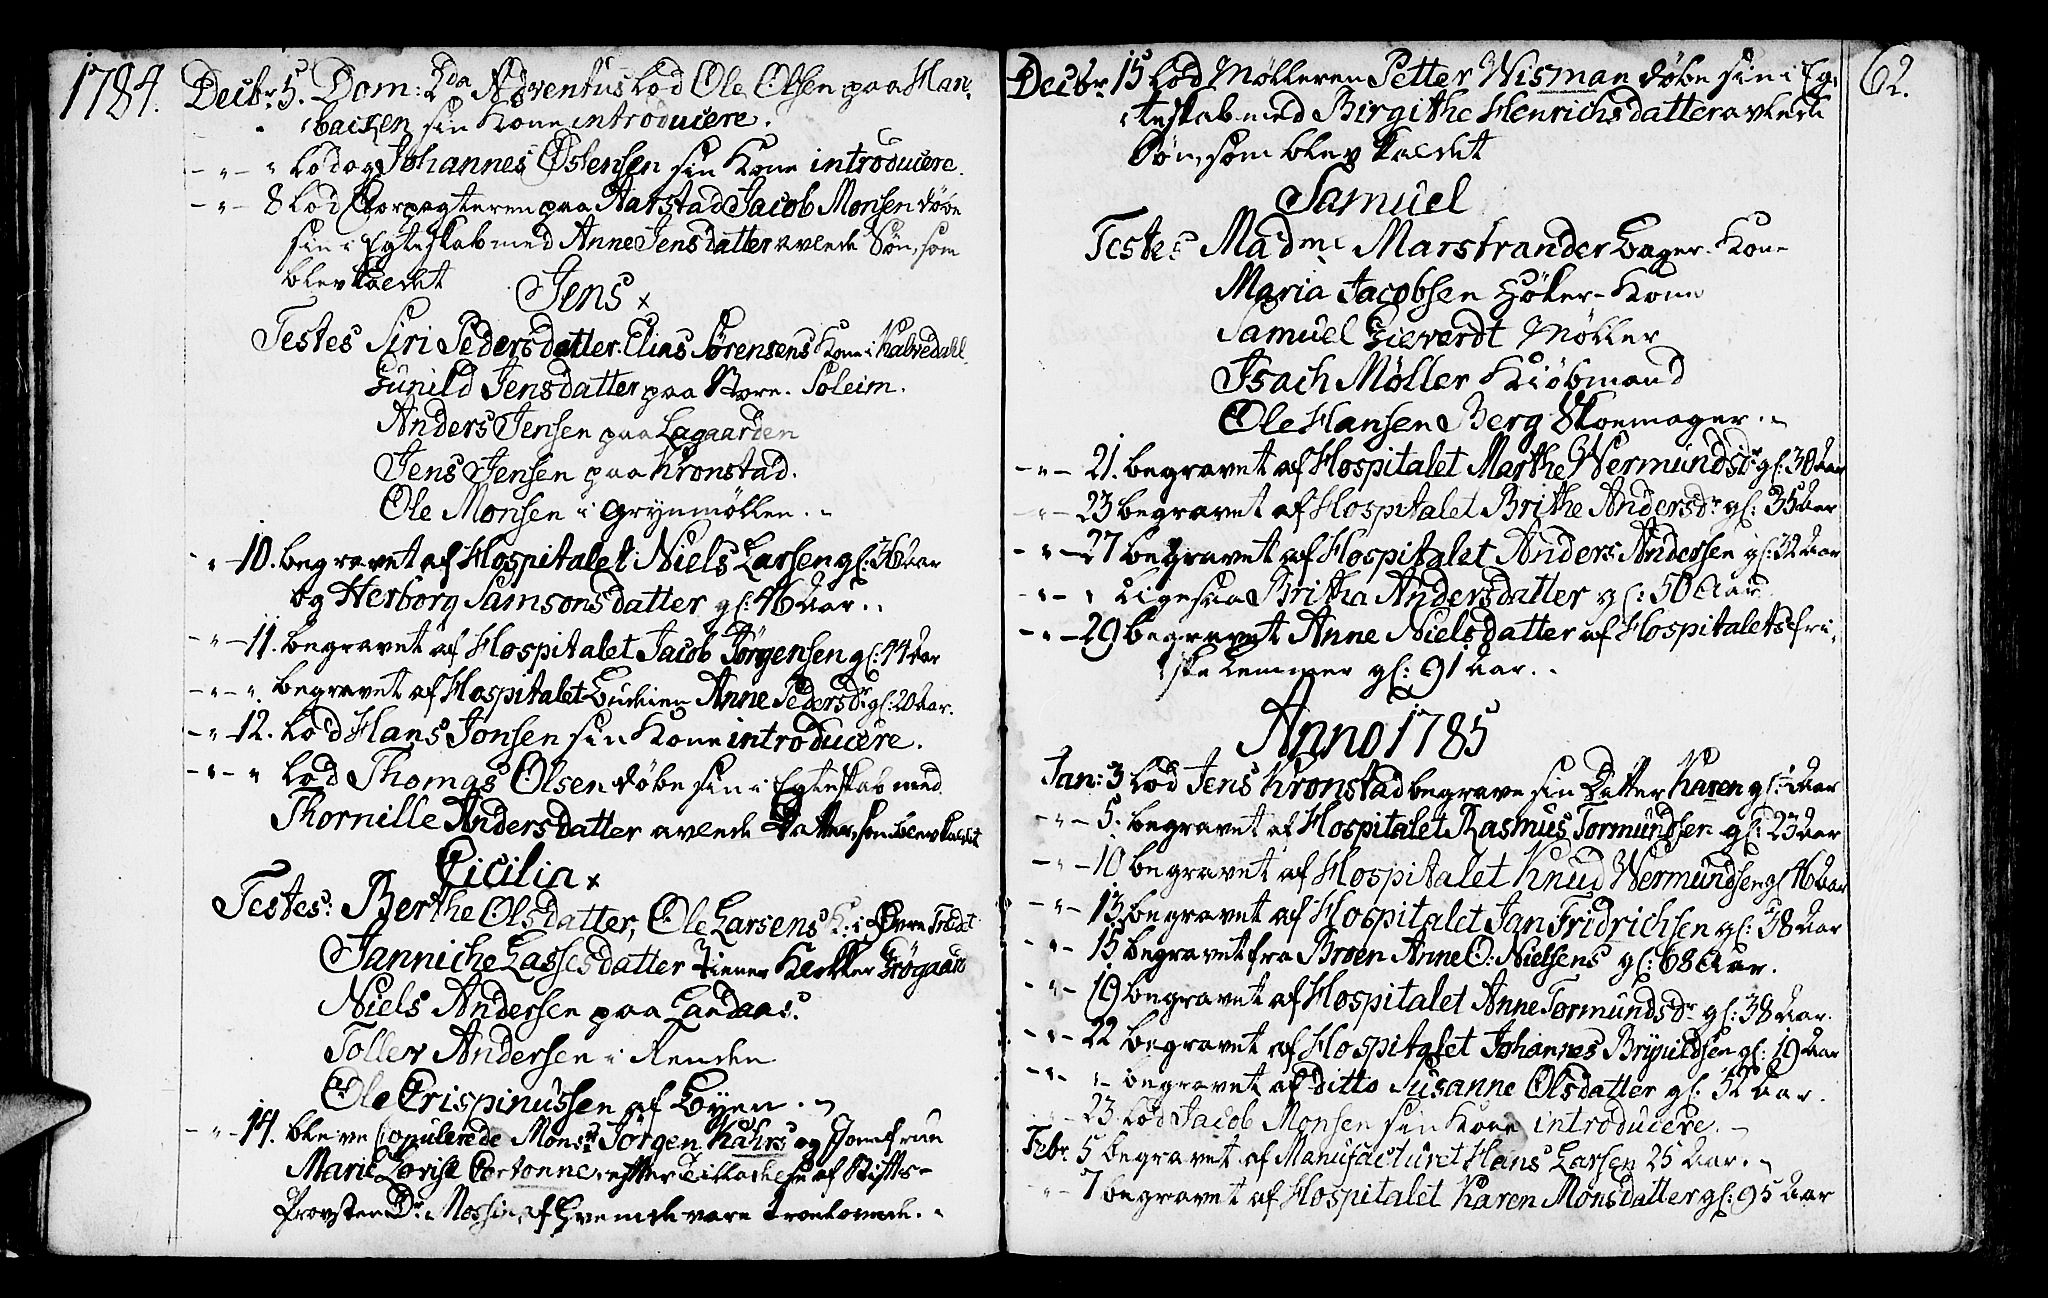 1784.
Decbr 5. Dom: 2da Adventus lod Ole Olsen paa Hare-
backen sin Kone introducere.
- " - " Lod og Johannes Østensen sin Kone introducere.
- " - 8 Lod Forpagteren paa Aarstad Jacob Monsen døbe
sin i Egteskab med Anne Jensdatter avlede Søn, som
blev kaldet
Jens x
Testes Siri Pedersdatter, Elias Sørensens Kone i Kalvedahl.
Gunild Jensdatter paa Store Soleim.
Anders Jensen paa Lagaarden
Jens Jensen paa Kronstad.
Ole Monsen i Grynmøllen.
" - 10. begravet af Hospitalet Niels Larsen gl: 36 Aar
og Herborg Samsonsdatter gl: 46 Aar.
- " - 11. begravet af Hospitalet Jacob Jørgensen gl: 44 Aar
- " - " begravet af Hospitalet Anne Pedersdr gl: 20 Aar.
- " - 12. Lod Hans Jonsen sin Kone introducere.
- " - " Lod Thomas Olsen døbe sin i Egteskab med
Thornille Andersdatter avlede Datter, som blev kaldet
Cicilia x
Testes: Berthe Olsdatter, Ole Larsens K: i Øvre Trædet
Janniche Lassesdatter tiener Frøgaard
Niels Andersen paa Landaas.
Toller Andersen i
Ole Crispinussen af Byen.
- " - 14. bleve Copulerede Monsr Jørgen Kahrs og Jomfrue
Marie Lovise Cortonne, efter Tilladelse af Stifts-
Provsten Dr: Mossin, af hvem de vare trolovede.
Decbr 15 Lod Mølleren Petter Wisman døbe sin i Eg-
teskab med Birgithe Henrichsdatter avlede
Søn, som blev kaldet
62.
Samuel
Testes Madme Marstrander Bager-Kone
Maria Jacobsen Høker-Kone
Samuel Gieverdt Møller
Isach Møller Kiøbmand
Ole Hansen Berg Skoemager.
- " - 21. begravet af Hospitalet Marthe Wermundsdr gl: 38 Aar
- " - 23 begravet af Hospitalet Brithe Andersdr gl: 35 Aar
- " - 27 begravet af Hospitalet Anders Andersen gl: 32 Aar
- " - " Ligesaa Britha Andersdatter gl: 50 Aar
- " - 29 begravet Anne Nielsdatter af Hospitalets fri-
ske Lemmer gl: 91 Aar.
Anno 1785
Jan: 3 Lod Jens Kronstad begrave sin Datter Karen gl 1½ Aar
- " - 5. begravet af Hospitalet Rasmus Tormundsen gl: 23 Aar
- " - 10 begravet af Hospitalet Knud Wermundsen gl 46 Aar
- " - 13 begravet af Hospitalet Jan Fridrichsen gl: 38 Aar
- " - 15 begravet fra Broen Anne O: Nielsens gl: 68 Aar.
- " - 19 begravet af Hospitalet Anne Tormundsdr gl: 38 Aar.
- " - 22 begravet af Hospitalet Johannes Brynildsen gl: 19 Aar
- " - " begravet af Ditto Susanne Olsdatter gl: 52 Aar.
- " - 23. Lod Jacob Monsen sin Kone introducere.
Febr. 5 begravet af Manufacturet Hans Larsen 25 Aar.
- " - 7 begravet af Hospitalet Karen Monsdatter gl: 95 Aar